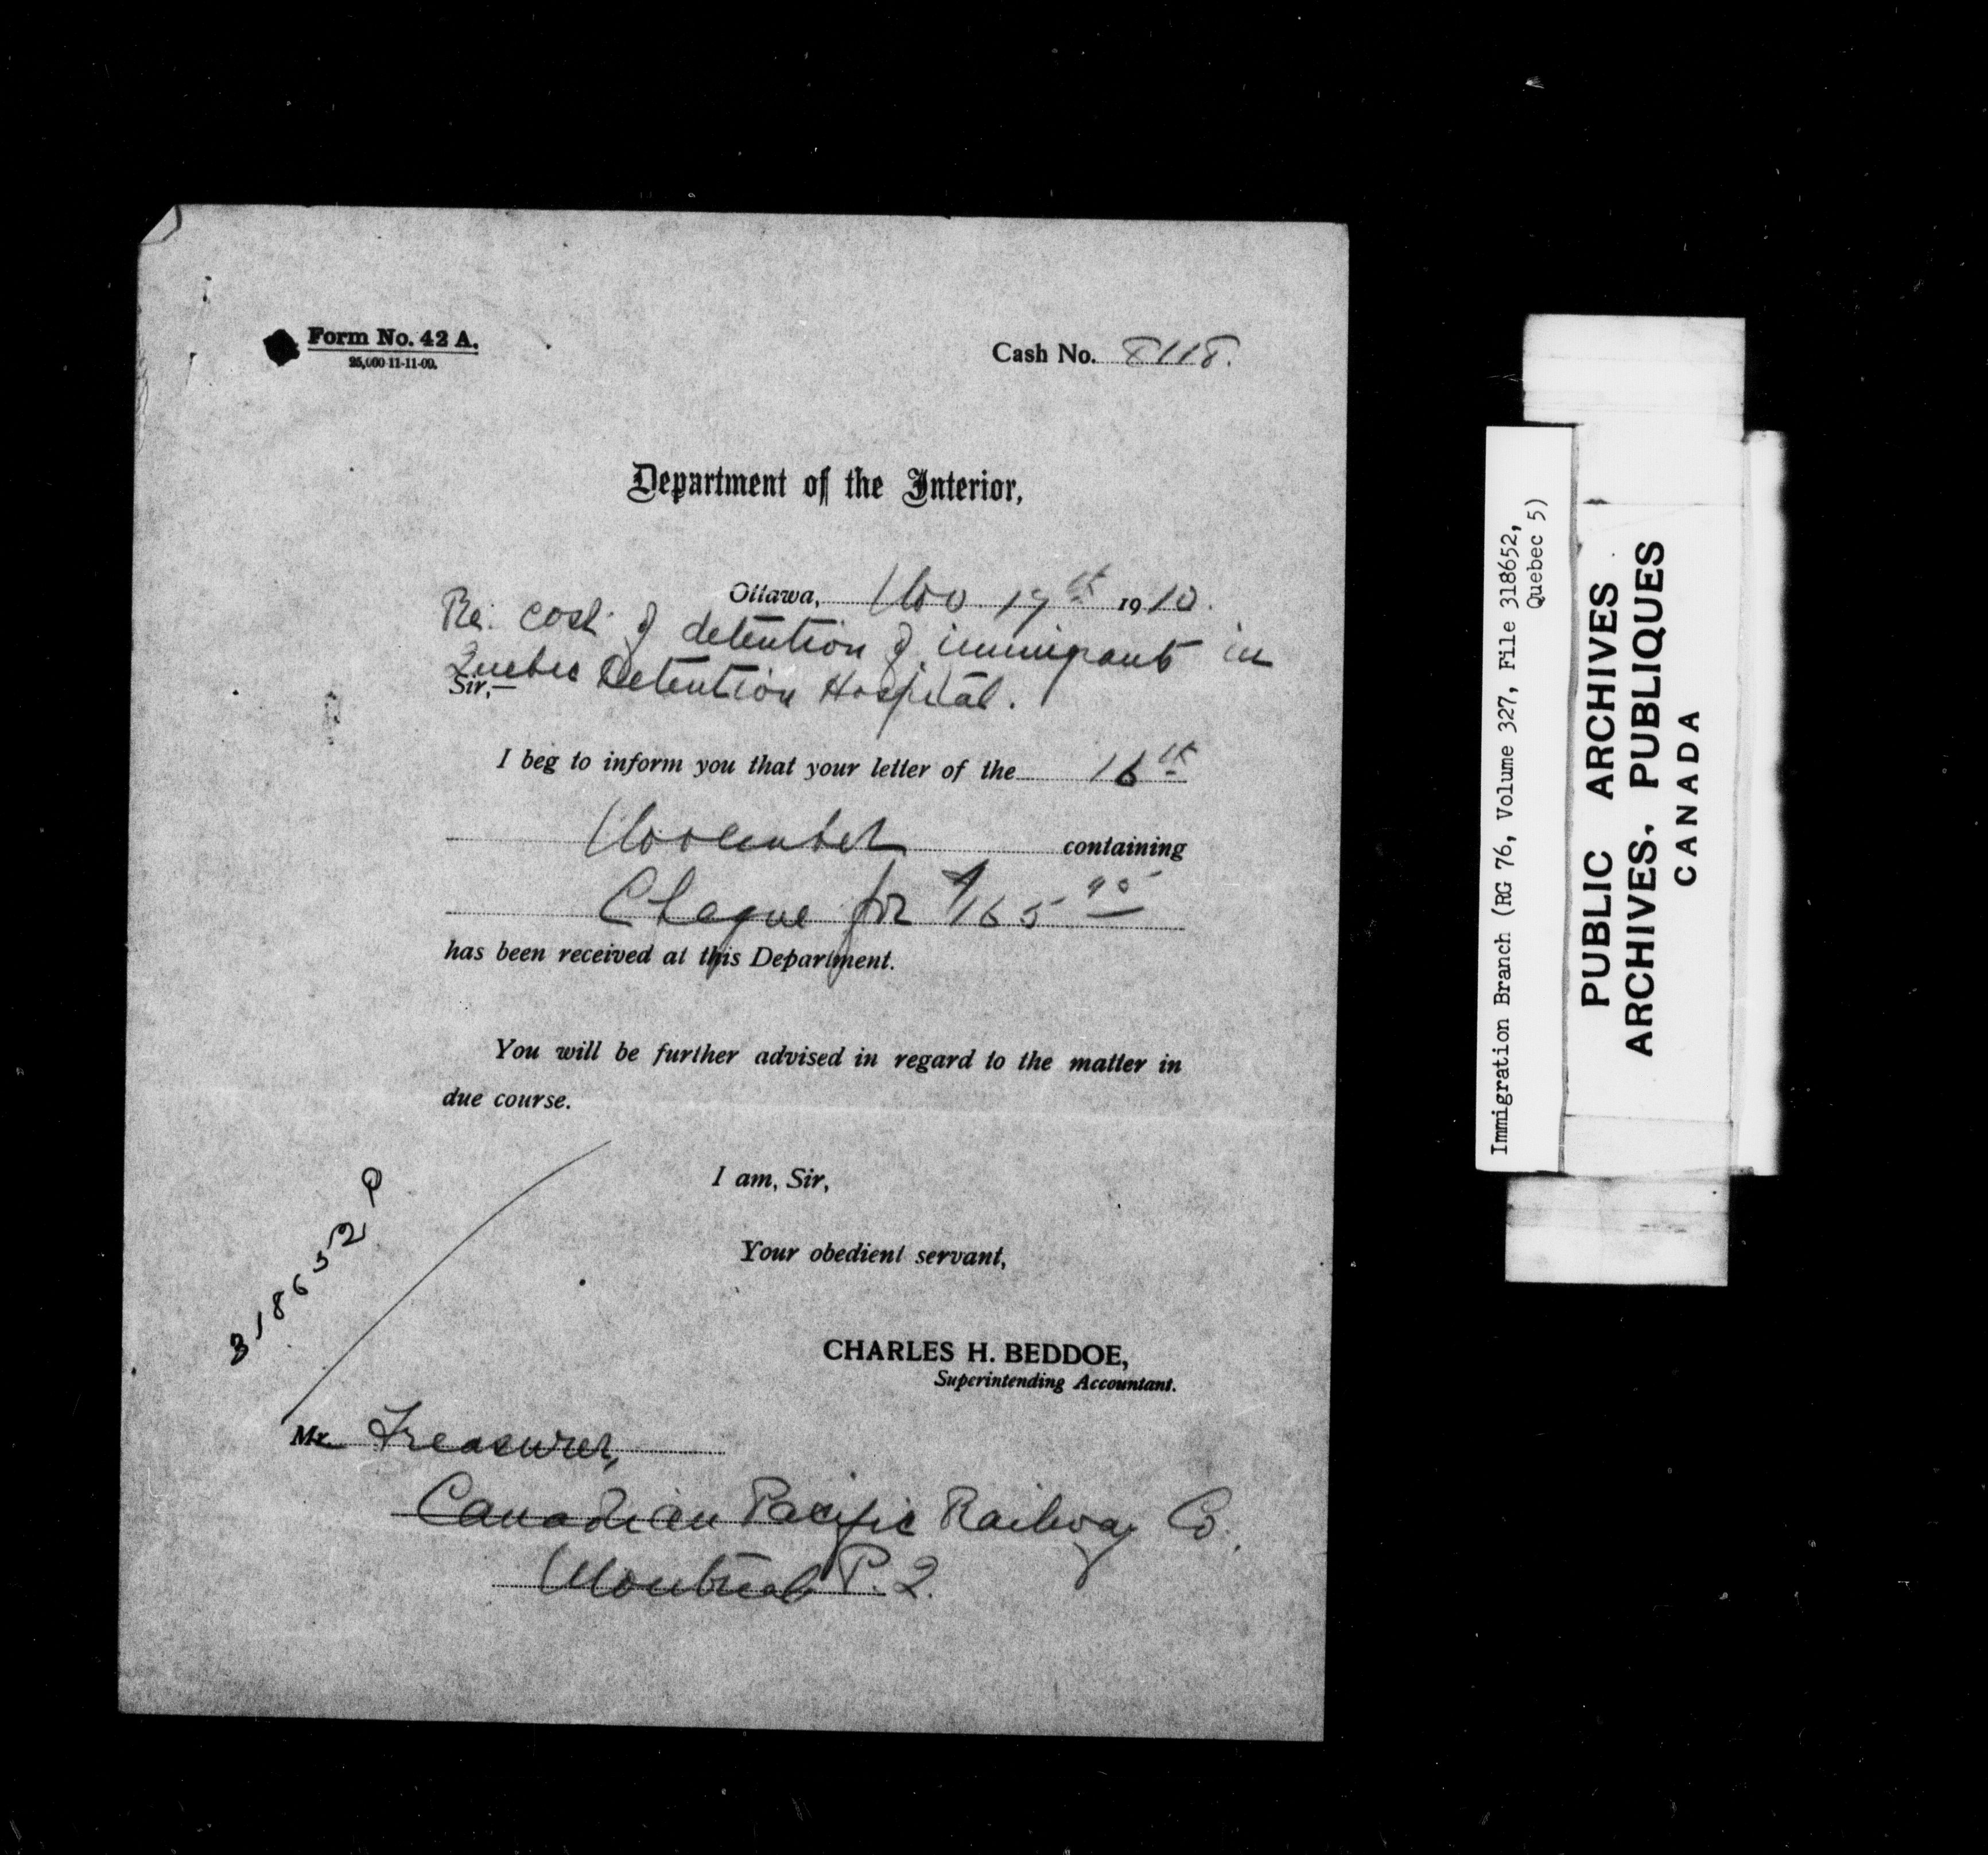 Form No. 42 A.
25,000-11-11-09.
Cash No. 8118.
Department of the Interior,
Ottawa, Nov 19th 1910.
Re: cost of detention of immigrants in
Quebec Detention Hospital.
Sir,—
I beg to inform you that your letter of the 16th
November containing
Cheque for $165
has been received at this Department.
You will be further advised in regard to the matter in
due course.
I am, Sir,
Your obedient servant,
CHARLES H. BEDDOE,
Superintending Accountant.
318652 Q
Mr. Treasurer,
Canadian Pacific Railway Co.
Montreal P.Q.
Immigration Branch (RG 76, Volume 327, File 318652,
Quebec 5)
PUBLIC ARCHIVES
ARCHIVES PUBLIQUES
CANADA